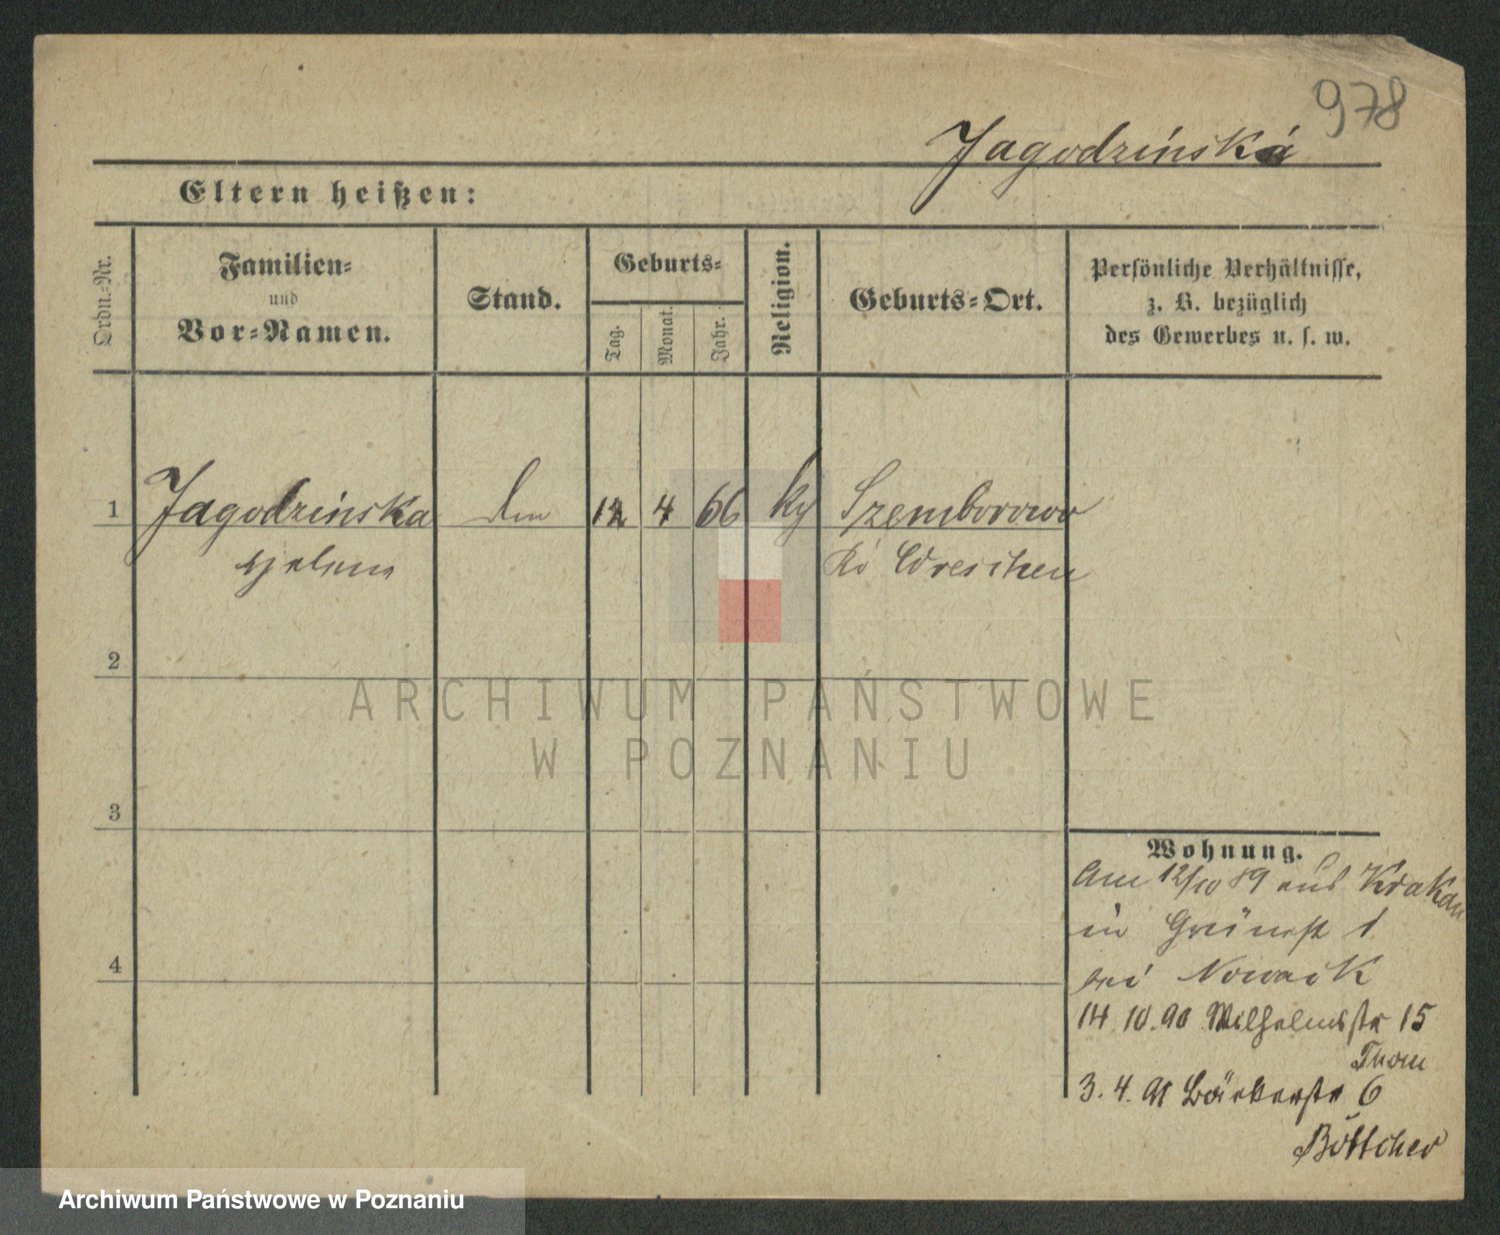 978
Jagodzińská
Eltern heißen:
Ordn.-Nr.
Familien-
und
Vor-Namen.
Stand.
Geburts-
Tag.
Monat.
Jahr.
Religion.
Geburts-Ort.
Persönliche Verhältnisse,
z. B. bezüglich
des Gewerbes u. s. w.
1 Jagodzinska 12 4 66 Szemborowo
Helene Wreschen
2
ARCHIWUM PAŃSTWOWE
W POZNANIU
3
4
Wohnung.
Am 12/10 89 aus Krakau
in Grünestr 1
bei Nowack
14.10.90 Wilhelmstr 15
3.4.91 Bäckerstr 6
Böttcher
Archiwum Państwowe w Poznaniu